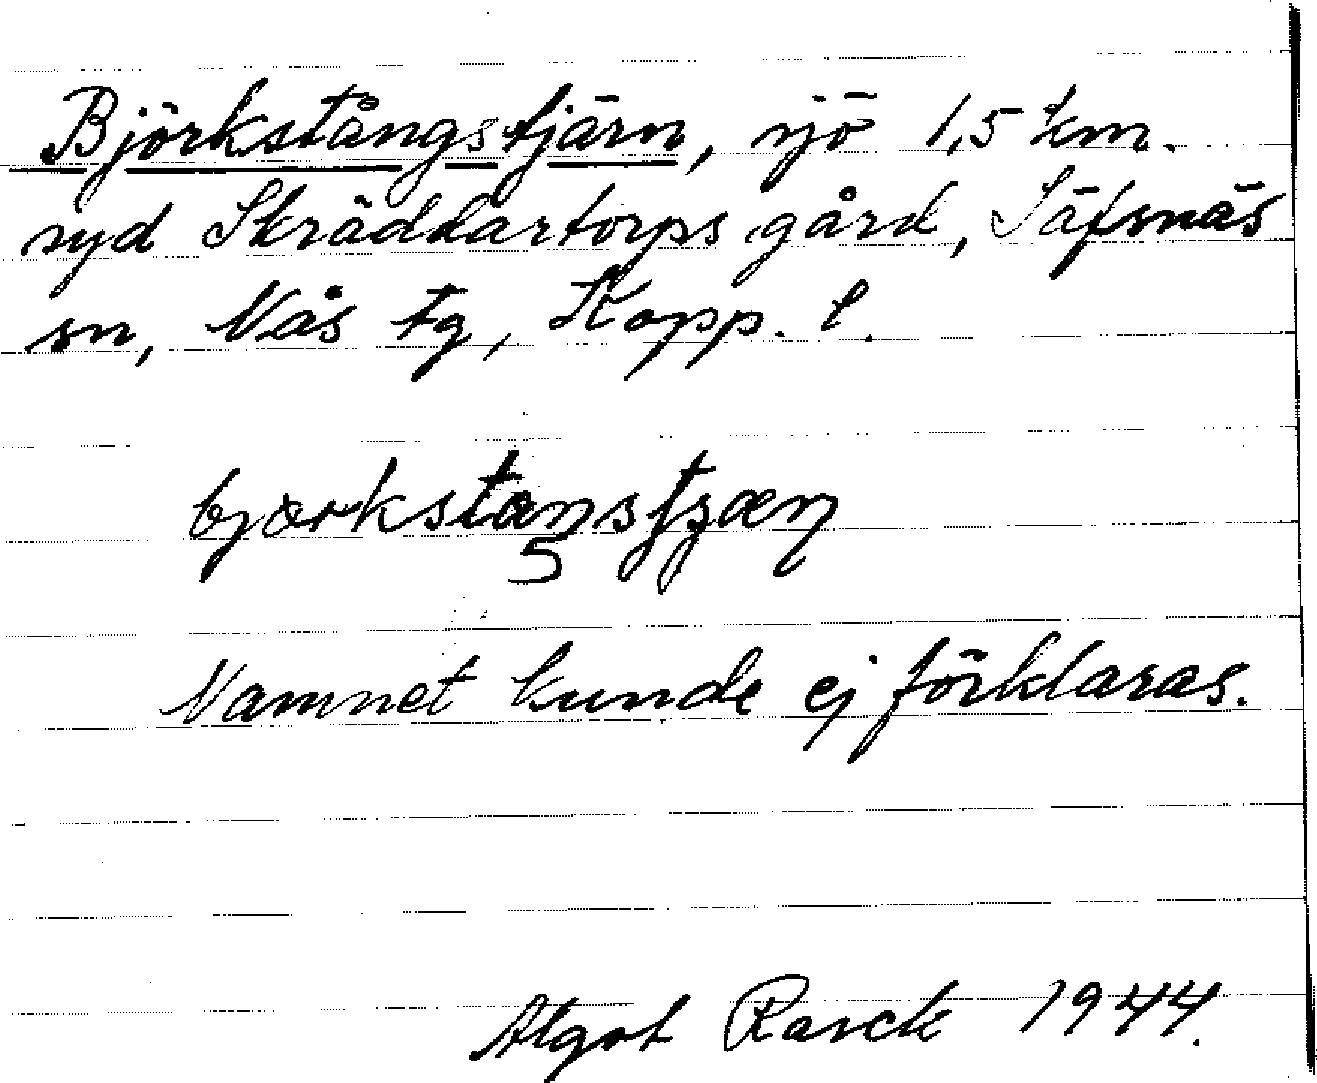 Björkstångstjärn, sjö 1,5 km.
syd Skräddartorps gård, Säfsnäs
sn, Nås tg, Kopp. l.
Namnet kunde ej förklaras.
Algot Rarck 1944.